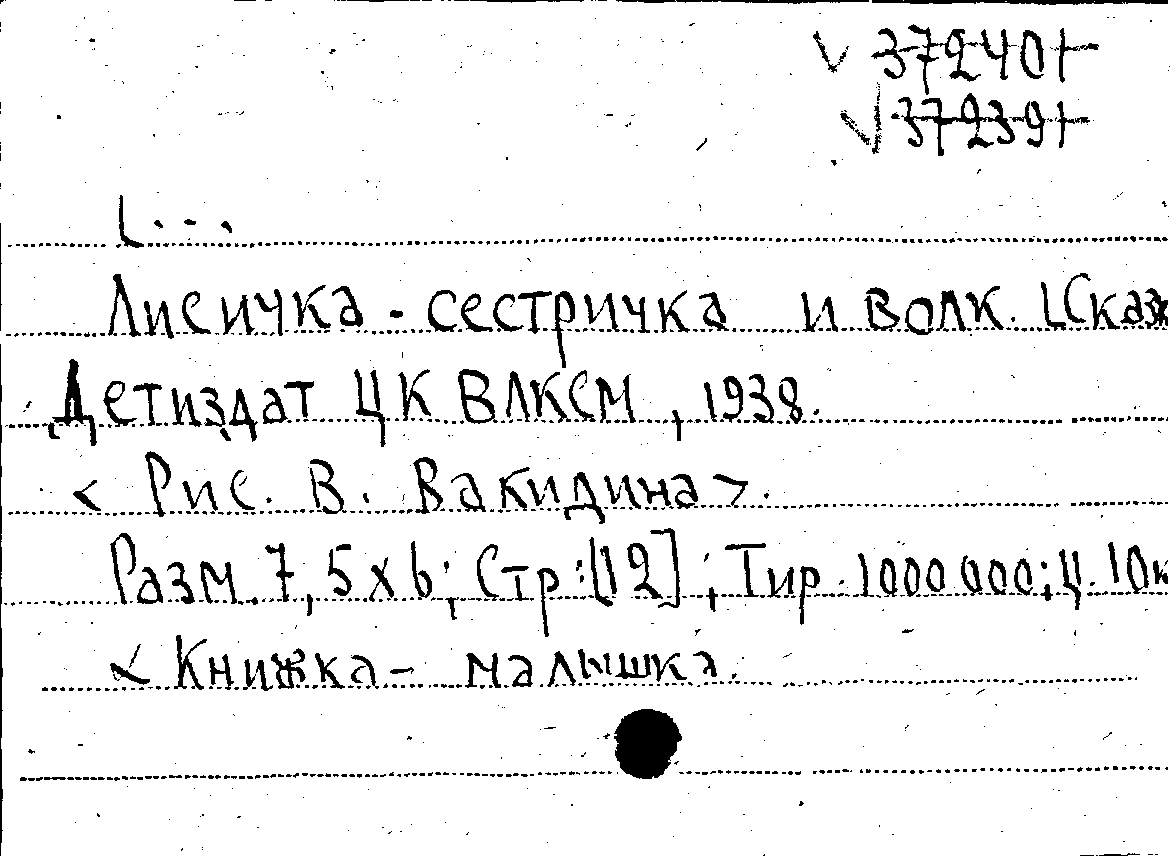 √ 372401
√ 372391
[...
Лисичка - сестричка и волк. [Сказ
Детиздат ЦК ВЛКСМ, 1938.
< Рис. В. Вакидина >.
Разм. 7,5 х 6; Стр: [12]; Тир. 1000 000; Ц. 10к
< Книжка - малышка.